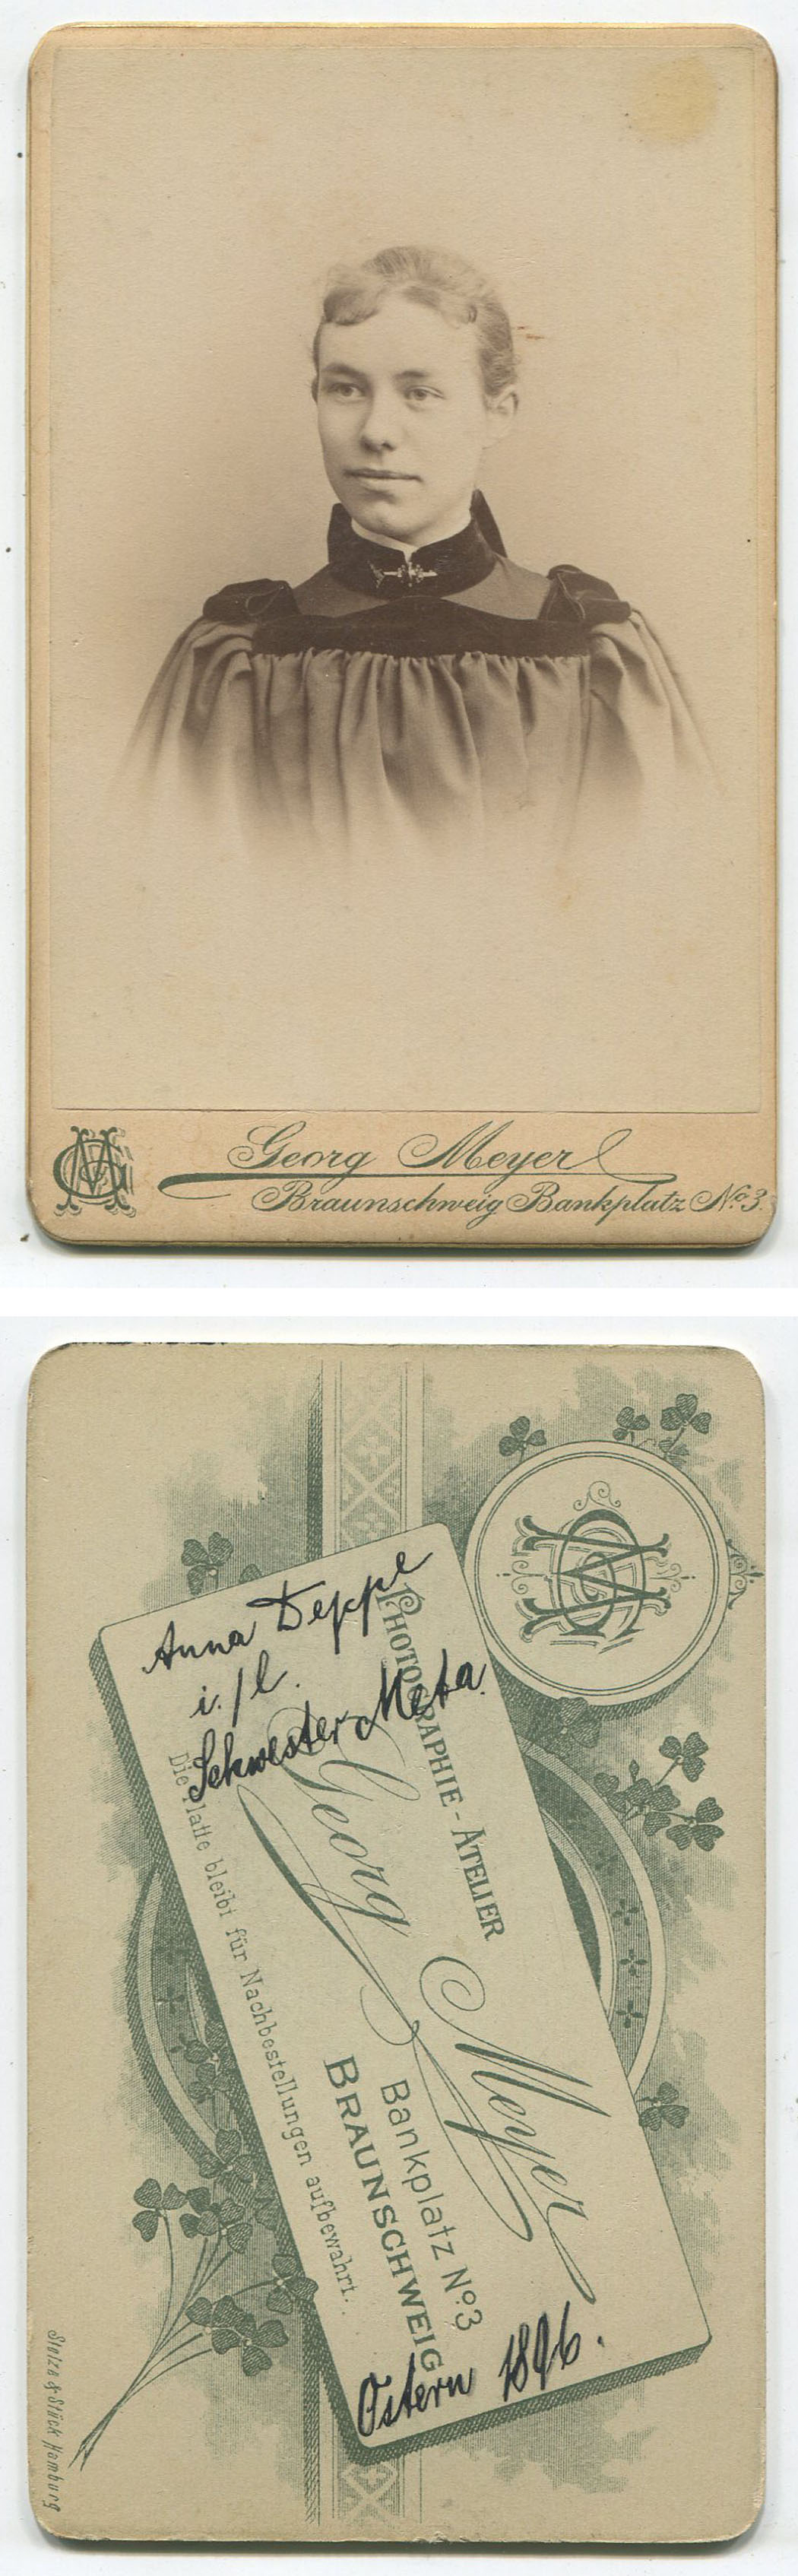 GM
Georg Meyer
Braunschweig Bankplatz No 3.
GM
Anna Deppe
i./l.
Schwester Meta.
PHOTOGRAPHIE-ATELIER
Georg Meyer
Bankplatz No 3
BRAUNSCHWEIG
Die Platte bleibt für Nachbestellungen aufbewahrt.
Ostern 1896.
Stolze & Stück Hamburg